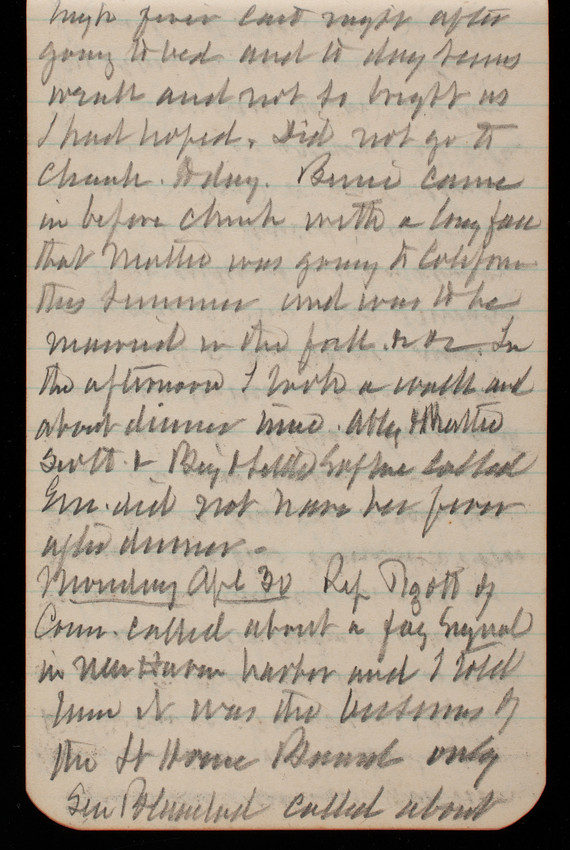 high fever last night after
going to bed and to day seems
weak and not so bright as
I had hoped. Did not go to
church today. Bernie came
in before church with a long face
that Mattie was going to California
this summer and was to be
married in the fall. In
the afternoon I took a walk and
about dinner time. Abby & Mattie
Scott & called
Em. did not have her fever
after dinner -
Monday Apl 30 Rep Pigott of
Conn. called about a fog Signal
in New Haven harbor and I told
him it was the business of
the Lt House Board only
Gen called about